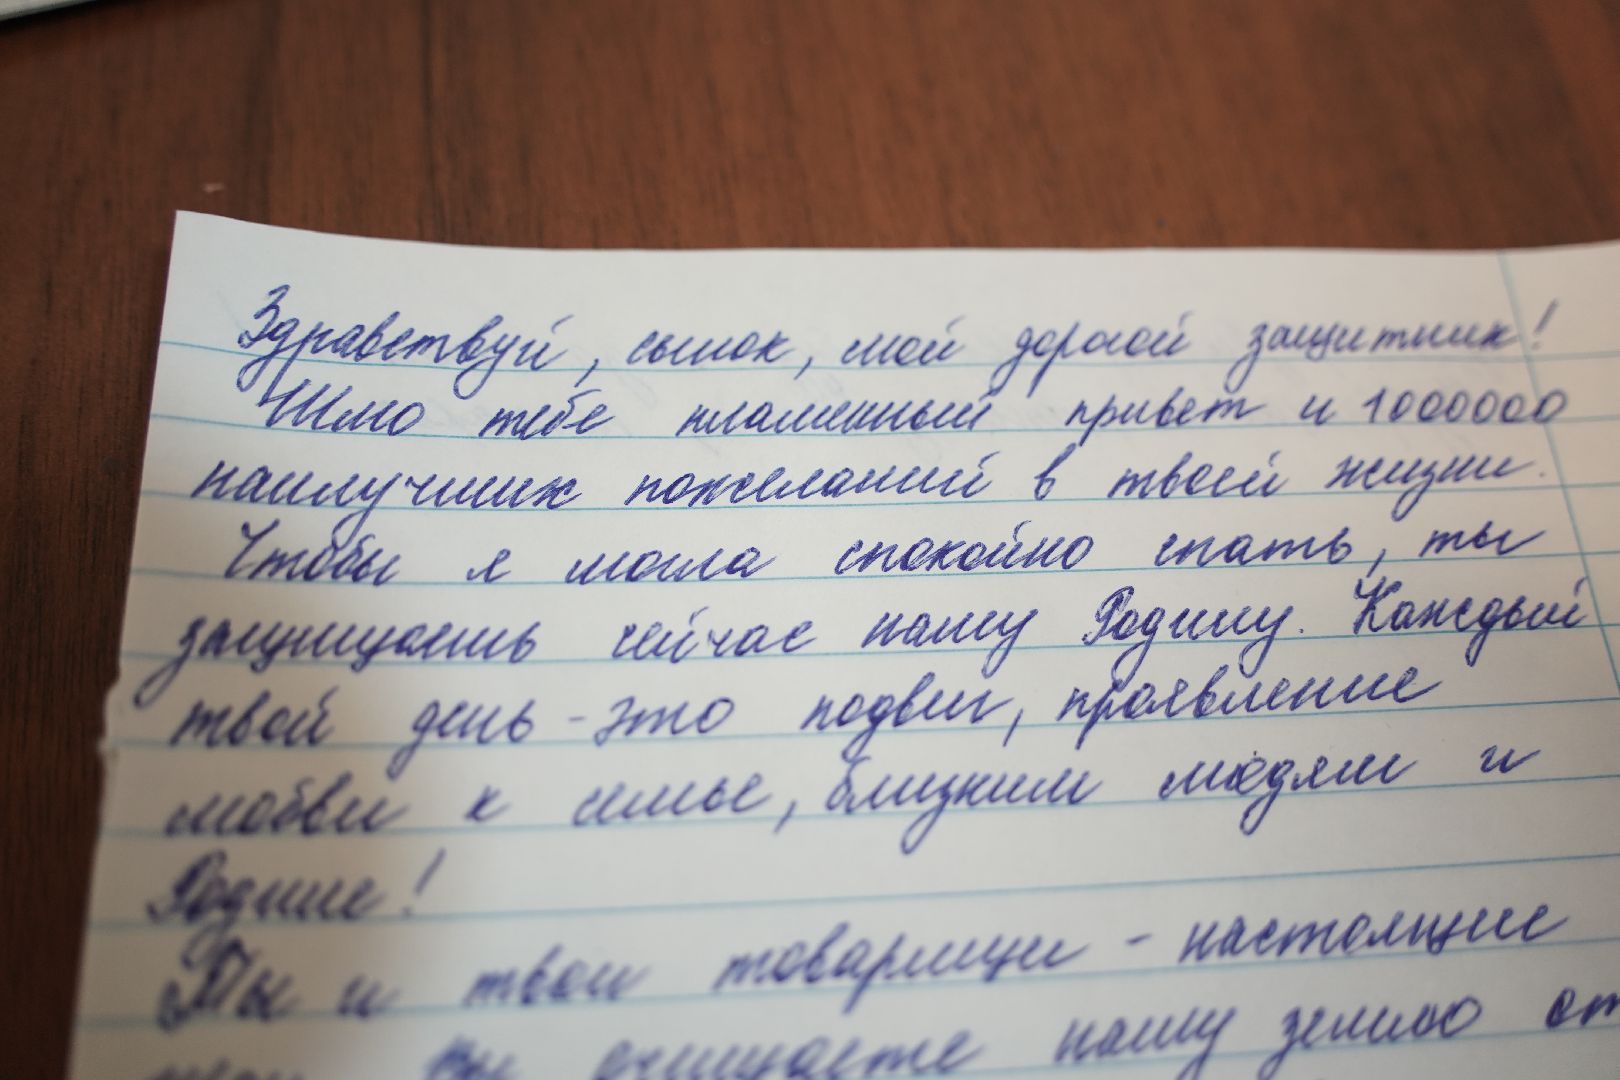 Здравствуй, сынок, мой дорогой защитник!
Шлю тебе пламенный привет и 1000000
наилучших пожеланий в твоей жизни.
Чтобы я могла спокойно спать, ты
защищаешь сейчас нашу Родину. Каждый
твой день - это подвиг, проявление
любви к семье, близким людям и
Родине!
Ты и твои товарищи - настоящие
Вы очищаете нашу землю от